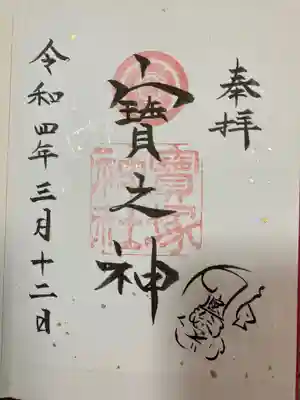 奉拝
寳之神
寳塚
神社
令和四年三月十二日